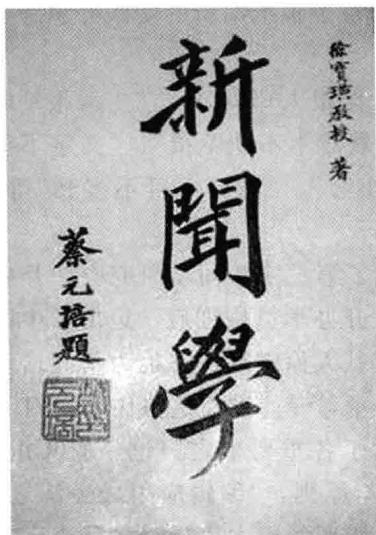 徐寶璜教授 著
新聞學
蔡元培題